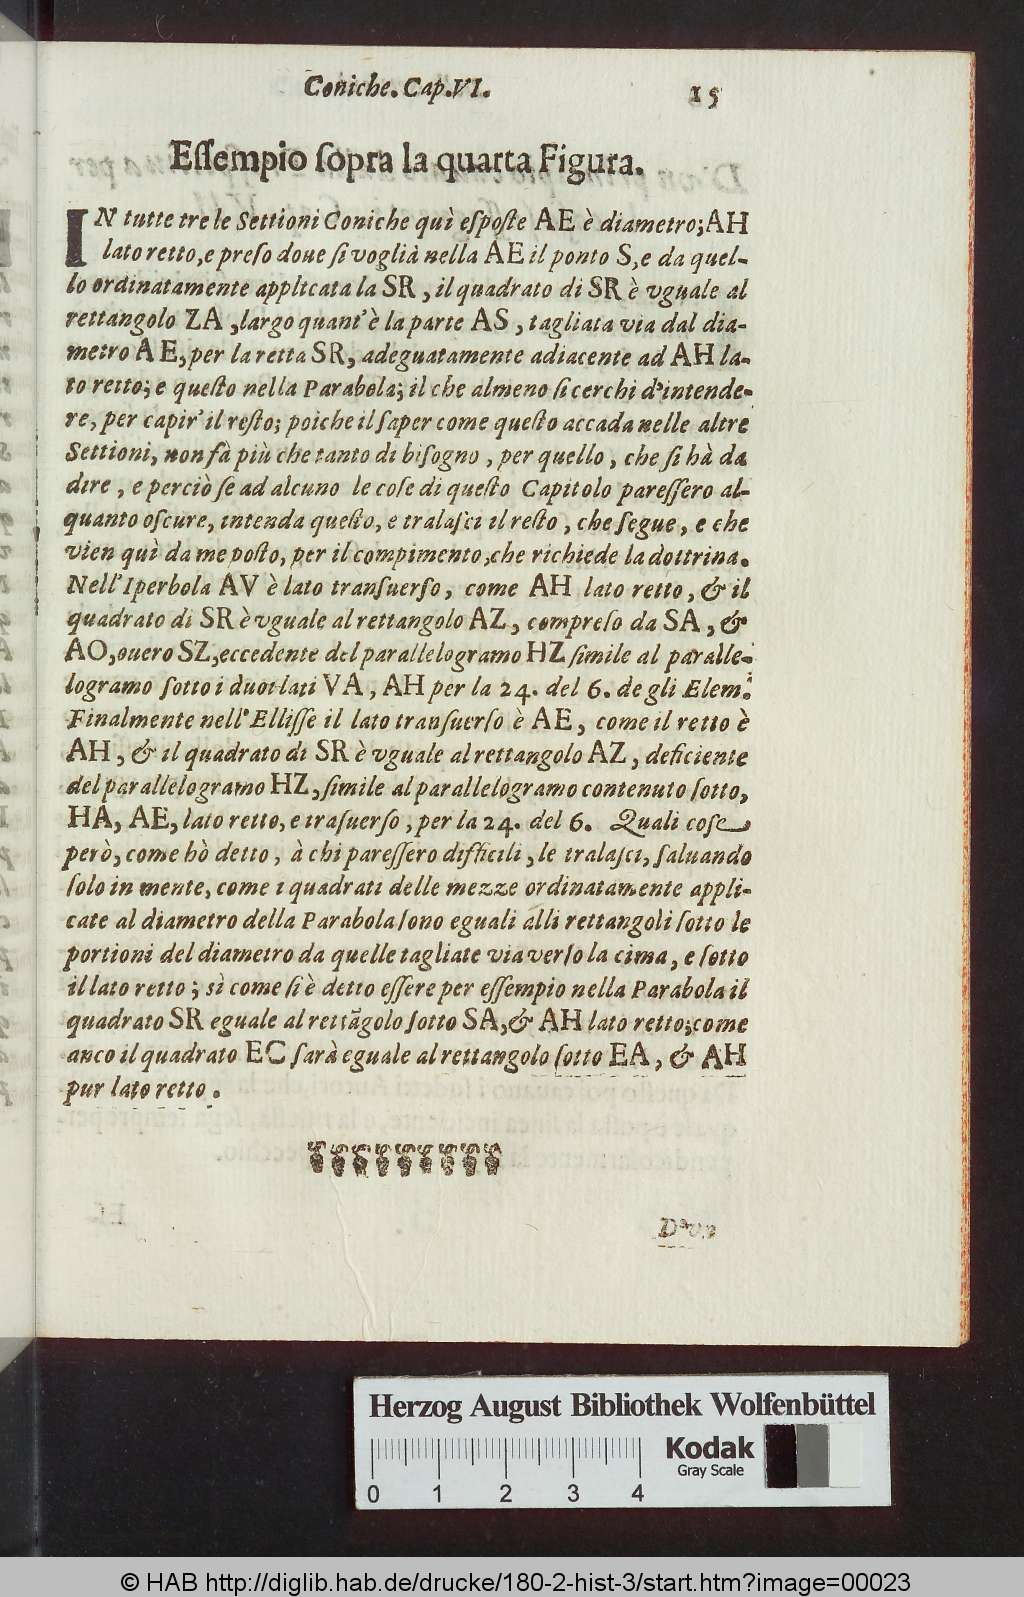 Coniche. Cap. VI. 15
Eſſempio ſopra la quarta Figura.
IN tutte tre le Settioni Coniche quì eſpoſte AE è diametro; AH
lato retto, e preſo doue ſi voglià nella AE il ponto S, e da quel-
lo ordinatamente applicata la SR, il quadrato di SR è vguale al
rettangolo ZA, largo quant' è la parte AS, tagliata via dal dia-
metro AE, per la retta SR, adeguatamente adiacente ad AH la-
to retto; e queſto nella Parabola; il che almeno ſi cerchi d'intende-
re, per capir' il reſto; poiche il ſaper come queſto accada nelle altre
Settioni, non fà più che tanto di biſogno, per quello, che ſi hà da
dire, e perciò ſe ad alcuno le coſe di queſto Capitolo pareſſero al-
quanto oſcure, intenda queſto, e tralaſci il reſto, che ſegue, e che
vien quì da me poſto, per il compimento, che richiede la dottrina.
Nell' Iperbola AV è lato tranſuerſo, come AH lato retto, & il
quadrato di SR è vguale al rettangolo AZ, compreſo da SA, &
AO, ouero SZ, eccedente del parallelogramo HZ ſimile al paralle-
logramo ſotto i duoi lati VA, AH per la 24. del 6. de gli Elem.
Finalmente nell' Elliſſe il lato tranſuerſo è AE, come il retto è
AH, & il quadrato di SR è vguale al rettangolo AZ, deficiente
del parallelogramo HZ, ſimile al parallelogramo contenuto ſotto,
HA, AE, lato retto, e traſuerſo, per la 24. del 6. Quali coſe
però, come hò detto, à chi pareſſero difficili, le tralaſci, ſaluando
ſolo in mente, come i quadrati delle mezze ordinatamente appli-
cate al diametro della Parabola ſono eguali alli rettangoli ſotto le
portioni del diametro da quelle tagliate via verſo la cima, e ſotto
il lato retto; sì come ſi è detto eſſere per eſſempio nella Parabola il
quadrato SR eguale al rettãgolo ſotto SA, & AH lato retto; come
anco il quadrato EC ſarà eguale al rettangolo ſotto EA, & AH
pur lato retto.
D'vn
Herzog August Bibliothek Wolfenbüttel
Kodak
Gray Scale
0 1 2 3 4
© HAB http://diglib.hab.de/drucke/180-2-hist-3/start.htm?image=00023